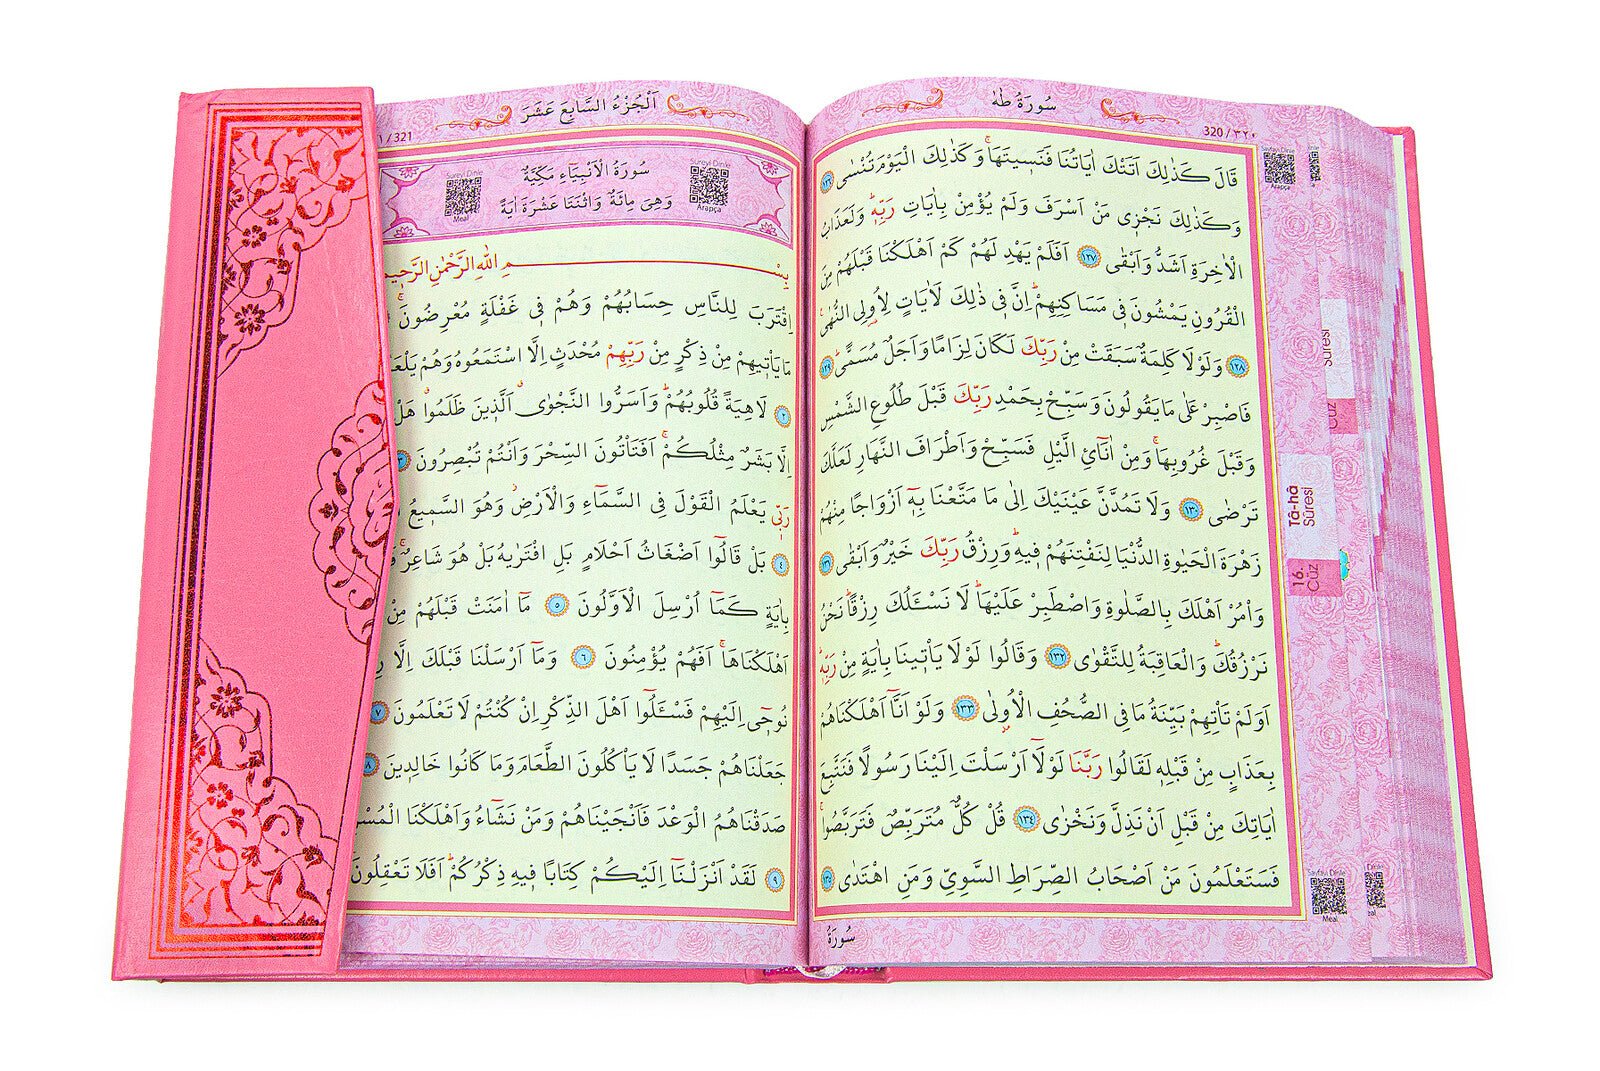 سُورَةُ طٰهٰ
320 / ٣٢٠
قَالَ كَذٰلِكَ اَتَتْكَ اٰيَاتُنَا فَنَسٖيتَهَاۚ وَكَذٰلِكَ الْيَوْمَ تُنْسٰى ﴿١٢٦﴾
وَكَذٰلِكَ نَجْزٖى مَنْ اَسْرَفَ وَلَمْ يُؤْمِنْ بِاٰيَاتِ رَبِّهٖۜ وَلَعَذَابُ
الْاٰخِرَةِ اَشَدُّ وَاَبْقٰى ﴿١٢٧﴾ اَفَلَمْ يَهْدِ لَهُمْ كَمْ اَهْلَكْنَا قَبْلَهُمْ مِنَ
الْقُرُونِ يَمْشُونَ فٖى مَسَاكِنِهِمْۜ اِنَّ فٖى ذٰلِكَ لَاٰيَاتٍ لِاُو۬لِى النُّهٰى
﴿١٢٨﴾ وَلَوْلَا كَلِمَةٌ سَبَقَتْ مِنْ رَبِّكَ لَكَانَ لِزَامًا وَاَجَلٌ مُسَمًّى ﴿١٢٩﴾
فَاصْبِرْ عَلٰى مَا يَقُولُونَ وَسَبِّحْ بِحَمْدِ رَبِّكَ قَبْلَ طُلُوعِ الشَّمْسِ
وَقَبْلَ غُرُوبِهَاۚ وَمِنْ اٰنَآئِ الَّيْلِ فَسَبِّحْ وَاَطْرَافَ النَّهَارِ لَعَلَّكَ
تَرْضٰى ﴿١٣٠﴾ وَلَا تَمُدَّنَّ عَيْنَيْكَ اِلٰى مَا مَتَّعْنَا بِهٖٓ اَزْوَاجًا مِنْهُمْ
زَهْرَةَ الْحَيٰوةِ الدُّنْيَا لِنَفْتِنَهُمْ فٖيهِۜ وَرِزْقُ رَبِّكَ خَيْرٌ وَاَبْقٰى ﴿١٣١﴾
وَأْمُرْ اَهْلَكَ بِالصَّلٰوةِ وَاصْطَبِرْ عَلَيْهَاۜ لَا نَسْـَٔلُكَ رِزْقًاۜ نَحْنُ
نَرْزُقُكَۜ وَالْعَاقِبَةُ لِلتَّقْوٰى ﴿١٣٢﴾ وَقَالُوا لَوْلَا يَأْتٖينَا بِاٰيَةٍ مِنْ رَبِّهٖۜ
اَوَلَمْ تَأْتِهِمْ بَيِّنَةُ مَا فِى الصُّحُفِ الْاُو۫لٰى ﴿١٣٣﴾ وَلَوْ اَنَّٓا اَهْلَكْنَاهُمْ
بِعَذَابٍ مِنْ قَبْلِهٖ لَقَالُوا رَبَّنَا لَوْلَٓا اَرْسَلْتَ اِلَيْنَا رَسُولًا فَنَتَّبِعَ
اٰيَاتِكَ مِنْ قَبْلِ اَنْ نَذِلَّ وَنَخْزٰى ﴿١٣٤﴾ قُلْ كُلٌّ مُتَرَبِّصٌ فَتَرَبَّصُواۚ
فَسَتَعْلَمُونَ مَنْ اَصْحَابُ الصِّرَاطِ السَّوِيِّ وَمَنِ اهْتَدٰى ﴿١٣٥﴾
سُورَةُ
Sayfayı Dinle
Arapça
Sûresi
Cüz
Tâ-hâ
Sûresi
16.
Cüz
Sayfayı Dinle
Meal
اَلْجُزْءُ السَّابِعَ عَشَرَ
١ / 321
سُورَةُ الْاَنْبِيَٓاءِ مَكِّيَّةٌ
وَهِىَ مِائَةٌ وَاثْنَتَا عَشْرَةَ اٰيَةً
Sureyi Dinle
Arapça
Sureyi Dinle
Meal
بِسْــــمِ اللّٰهِ الرَّحْمٰنِ الرَّحٖيمِ
اِقْتَرَبَ لِلنَّاسِ حِسَابُهُمْ وَهُمْ فٖى غَفْلَةٍ مُعْرِضُونَۚ
مَا يَأْتٖيهِمْ مِنْ ذِكْرٍ مِنْ رَبِّهِمْ مُحْدَثٍ اِلَّا اسْتَمَعُوهُ وَهُمْ يَلْعَ
﴿٢﴾ لَاهِيَةً قُلُوبُهُمْۜ وَاَسَرُّوا النَّجْوٰىۗ اَلَّذٖينَ ظَلَمُواۗ هَلْ
اِلَّا بَشَرٌ مِثْلُكُمْۚ اَفَتَأْتُونَ السِّحْرَ وَاَنْتُمْ تُبْصِرُونَ ﴿٣﴾
رَبّٖى يَعْلَمُ الْقَوْلَ فِى السَّمَٓاءِ وَالْاَرْضِۘ وَهُوَ السَّمٖيعُ
﴿٤﴾ بَلْ قَالُٓوا اَضْغَاثُ اَحْلَامٍ بَلِ افْتَرٰيهُ بَلْ هُوَ شَاعِرٌۚ
بِاٰيَةٍ كَمَٓا اُرْسِلَ الْاَوَّلُونَ ﴿٥﴾ مَٓا اٰمَنَتْ قَبْلَهُمْ مِنْ
اَهْلَكْنَاهَاۚ اَفَهُمْ يُؤْمِنُونَ ﴿٦﴾ وَمَٓا اَرْسَلْنَا قَبْلَكَ اِلَّا رِ
نُوحٖٓى اِلَيْهِمْ فَسْـَٔلُٓوا اَهْلَ الذِّكْرِ اِنْ كُنْتُمْ لَا تَعْلَمُونَ ﴿٧﴾
جَعَلْنَاهُمْ جَسَدًا لَا يَأْكُلُونَ الطَّعَامَ وَمَا كَانُوا خَالِدٖينَ ﴿٨﴾
صَدَقْنَاهُمُ الْوَعْدَ فَاَنْجَيْنَاهُمْ وَمَنْ نَشَٓاءُ وَاَهْلَكْنَا الْمُسْرِ
﴿٩﴾ لَقَدْ اَنْزَلْنَٓا اِلَيْكُمْ كِتَابًا فٖيهِ ذِكْرُكُمْۜ اَفَلَا تَعْقِلُونَ